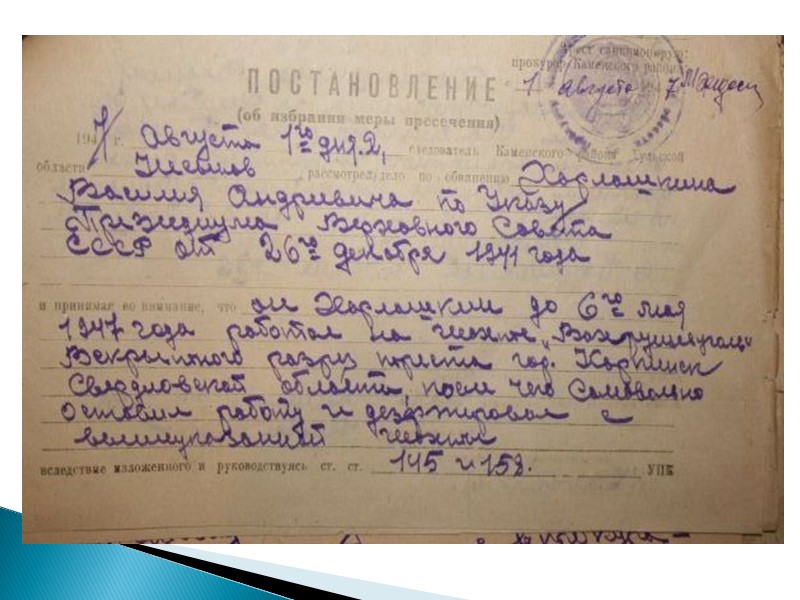 Арест санкционирую:
прокурор Каменского района
ПОСТАНОВЛЕНИЕ
1 Августа 1947
(об избрании меры пресечения)
1947 г. Августа 1го дня.
следователь Каменского района Тульской
области рассмотрел дело по обвинению Харлашкина
Василия Андривича по Указу
Призидиума Верховного Совета
СССР от 26го декабря 1941 года
и принимая во внимание, что он Харлашкин до 6го мая
1947 года работал на шахте „Вахрушевуголь“
Вскрышного разрез треста гор. Карпинск
Свердловской области, после чего Самовольно
Оставил работу и дезертировал с
вышеуказанной шахты
вследствие изложенного и руководствуясь ст. ст. 145 и 158. УПК